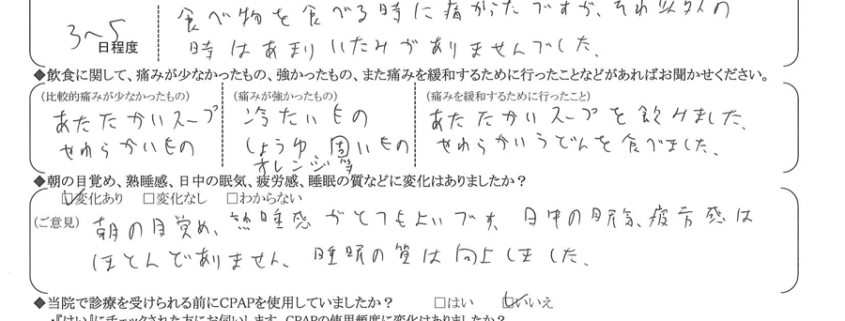 食べ物を食べる時に痛かったですが、それ以外の
3〜5
日程度
時はあまりいたみがありませんでした。
◆飲食に関して、痛みが少なかったもの、強かったもの、また痛みを緩和するために行ったことなどがあればお聞かせください。
（比較的痛みが少なかったもの） （痛みが強かったもの） （痛みを緩和するために行ったこと）
あたたかいスープ 冷たいもの あたたかいスープを飲みました、
やわらかいもの しょうゆ 固いもの やわらかいうどんを食べました、
オレンジ等
◆朝の目覚め、熟睡感、日中の眠気、疲労感、睡眠の質などに変化はありましたか？
☑変化あり □変化なし □わからない
（ご意見） 朝の目覚め、熟睡感がとてもよいです、日中の眠気、疲労感は
ほとんどありません、睡眠の質は向上しました、
◆当院で診療を受けられる前にCPAPを使用していましたか？ □はい ☑いいえ
・『はい』にチェックされた方にお伺いします。CPAPの使用頻度に変化はありましたか？